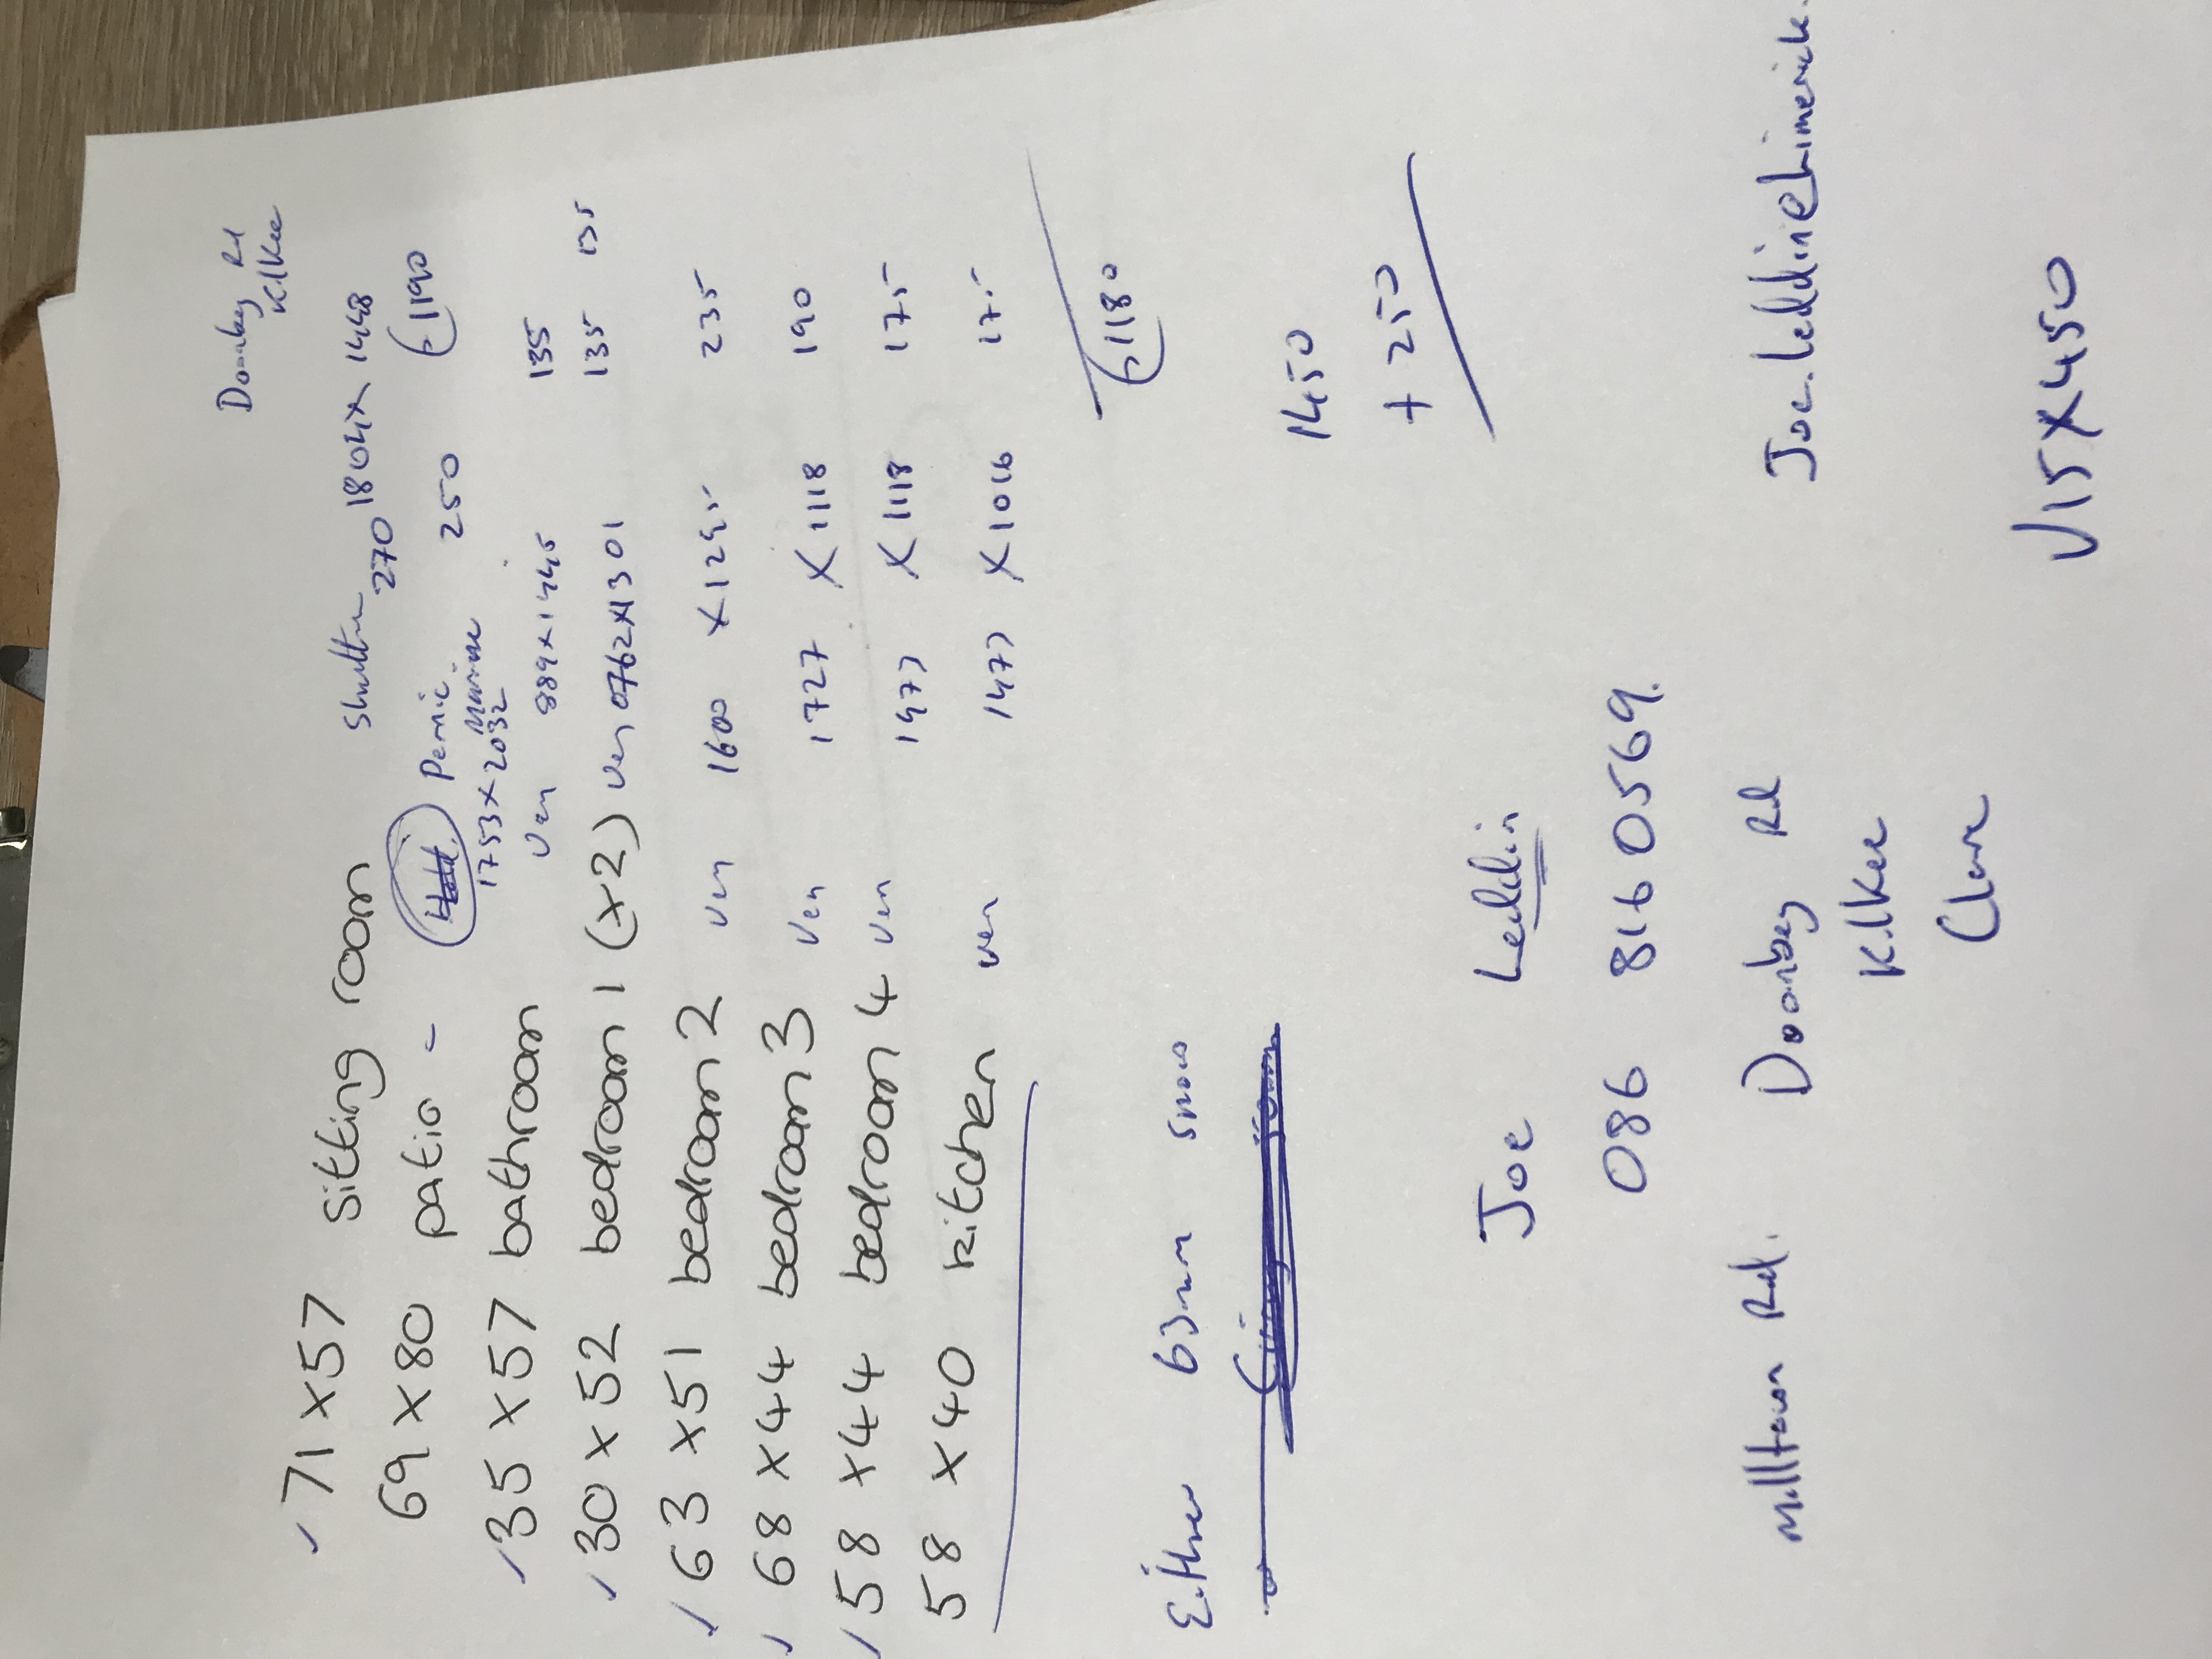 Doonbeg Rd
Kilkee
✓ 71 x 57 sitting room shutter 270 1804 x 1448
69 x 80 patio - Permic 250 €1190
1753 x 2032
✓ 35 x 57 bathroom Ven 889 x 1445 135
✓ 30 x 52 bedroom 1 (x2) Ven 0762 x 1301 135 135
✓ 63 x 51 bedroom 2 Ven 1600 x 1295 235
✓ 68 x 44 bedroom 3 Ven 1727 x 1118 190
✓ 58 x 44 bedroom 4 Ven 1477 x 1118 175
58 x 40 kitchen Ven 1477 x 1016 175
€1180
Either 63mm snow
1450
+ 250
Joe Leddin
086 816 0569.
Milltown Rd. Doonbeg Rd
Kilkee
Clare
V15 X450